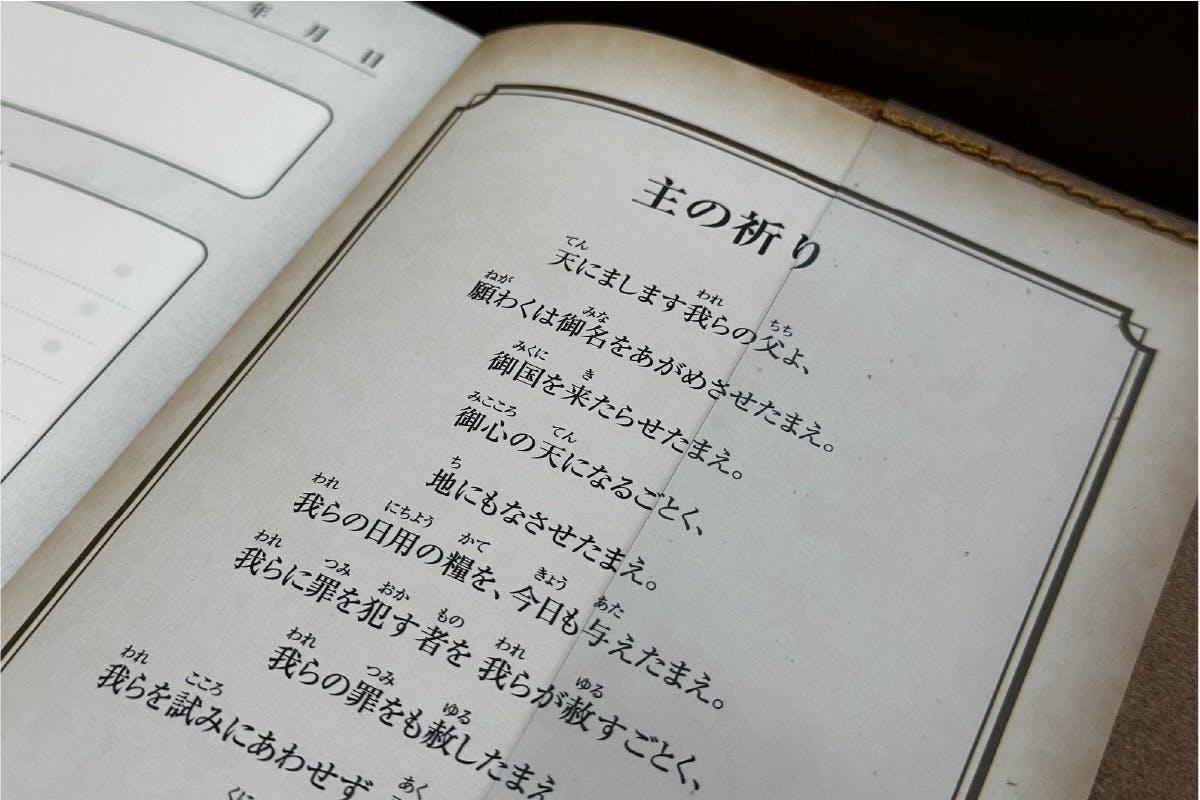 年 月 日
主の祈り
天にまします我らの父よ、
願わくは御名をあがめさせたまえ。
御国を来たらせたまえ。
御心の天になるごとく、
地にもなさせたまえ。
我らの日用の糧を、今日も与えたまえ。
我らに罪を犯す者を 我らが赦すごとく、
我らの罪をも赦したまえ
我らを試みにあわせず